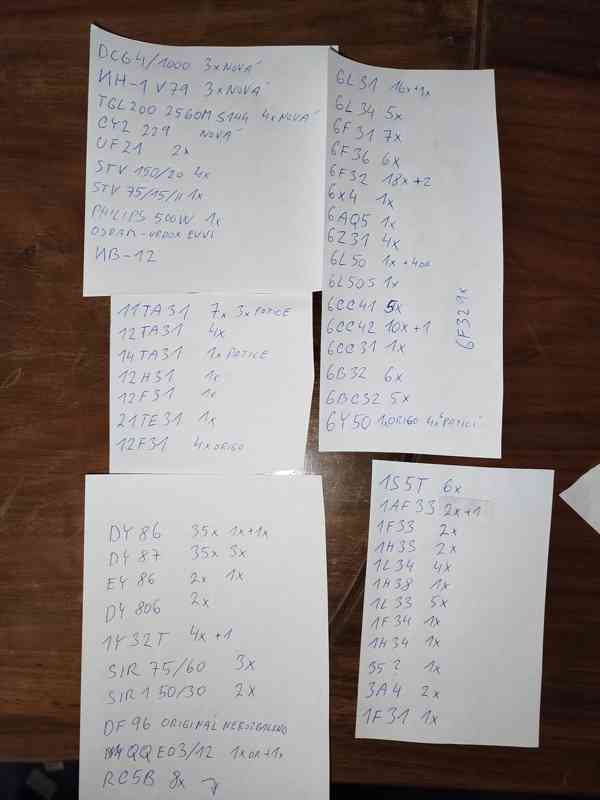 DCG4/1000 3x NOVÁ
ИН-1 V79 3x NOVÁ
TGL200 2560M S144 4x NOVÁ
CY2 229 NOVÁ
UF21 2x
STV 150/20 4x
STV 75/15/II 1x
PHILIPS 500W 1x
OSRAM-VRDOX
ИВ-12
11TA31 7x 3x PATICE
12TA31 4x
14TA31 1x PATICE
12H31 1x
12F31 1x
21TE31 1x
12F31 4x ORIGO
DY 86 35x 1x+1x
DY 87 35x 3x
EY 86 2x 1x
DY 806 2x
1Y32T 4x +1
SIR 75/60 3x
SIR 150/30 2x
DF 96 ORIGINÁL NEROZBALENO
QQE03/12 1x OR+1x
RC5B 8x
6L31 16x+1x
6L34 5x
6F31 7x
6F36 6x
6F32 18x+2
6x4 1x
6AQ5 1x
6Z31 4x
6L50 1x +4OR
6L50S 1x
6CC41 5x
6CC42 10x+1
6CC31 1x
6B32 6x
6BC32 5x
6Y50 1xORIGO 4x PATICI
6F32 1x
1S5T 6x
1AF33 2x+1
1F33 2x
1H33 2x
1L34 4x
1H38 1x
1L33 5x
1F34 1x
1H34 1x
35? 1x
3A4 2x
1F31 1x